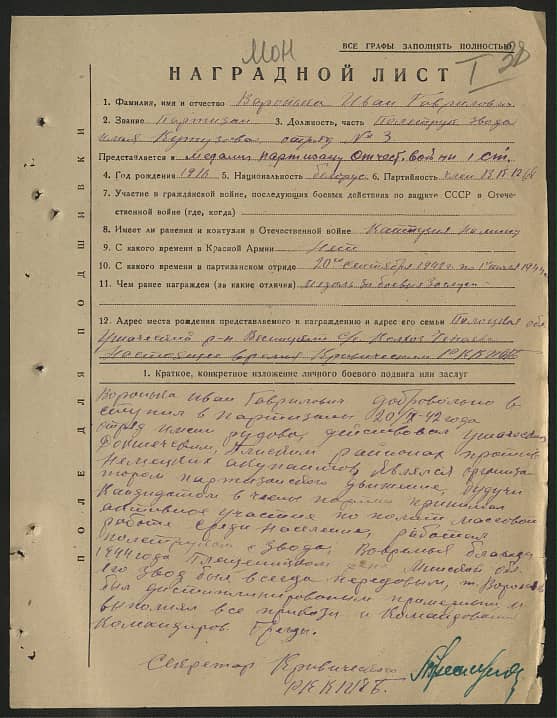 МОН
ВСЕ ГРАФЫ ЗАПОЛНЯТЬ ПОЛНОСТЬЮ
28
I
НАГРАДНОЙ ЛИСТ
1. Фамилия, имя и отчество Воронька Иван Гаврилович
2. Звание партизан 3. Должность, часть политрук звода
имени Кутузова отряд № 3
Представляется к медали партизану отечест. войны I ст.
4. Год рождения 1916 5. Национальность белорус 6. Партийность член
7. Участие в гражданской войне, последующих боевых действиях по защите СССР в Отече-
ственной войне (где, когда)
8. Имеет ли ранения и контузии в Отечественной войне
9. С какого времени в Красной Армии нет
10. С какого времени в партизанском отряде 20 сентября 1942 г. по 1 июля 1944
11. Чем ранее награжден (за какие отличия) за боевые заслуги
12. Адрес места рождения представляемого к награждению и адрес его семьи Полоцкая обл.
Ушачский р-н с/с Колхоз
Настоящее время Кривическом РК КП(б)Б
1. Краткое, конкретное изложение личного боевого подвига или заслуг
Воронька Иван Гаврилович добровольно в
ступил в партизаны 20/IX-42 года
отряд имени действовал Ушачском
районах против
немецких окупантов являлся организа
тором партизанского движение, будучи
Кандидатом в члены партии принимал
активное участие по полит массовой
работе среди населения, работая
политруком звода, Вовремья блакады
1944 года Плещеницком Минской обл.
его звод был всегда передовым, т. Воронька
был дисциплинированым
выполнял все приказы и Командования
Командиров бригады.
Секретар Кривического
РК КП/б/Б.
ПОЛЕ ДЛЯ ПОДШИВКИ